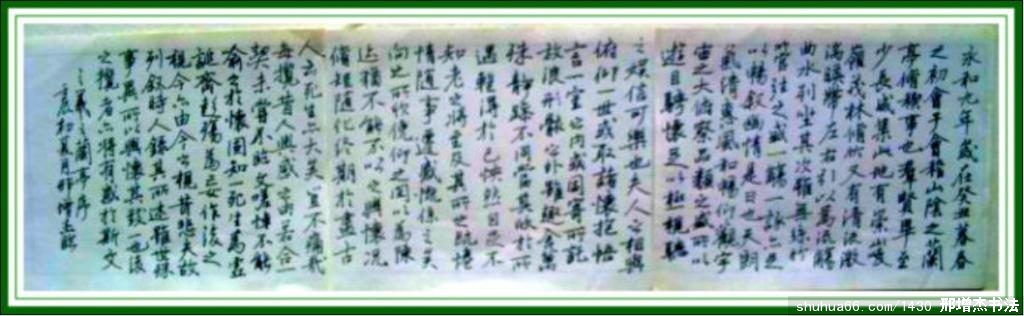 永和九年歲在癸丑暮春
之初會于會稽山陰之蘭
亭脩禊事也群賢畢至
少長咸集此地有崇山峻
嶺茂林脩竹又有清流激
湍暎帶左右引以為流觴
曲水列坐其次雖無絲竹
管弦之盛一觴一詠亦足
以暢敘幽情是日也天朗
氣清惠風和暢仰觀宇
宙之大俯察品類之盛所以
遊目騁懷足以極視聽
之娛信可樂也夫人之相與
俯仰一世或取諸懷抱悟
言一室之內或因寄所託
放浪形骸之外雖趣舍萬
殊靜躁不同當其欣於所
遇輒得於己怏然自足不
知老之將至及其所之既惓
情隨事遷感慨係之矣
向之所欣俛仰之間以為陳
迹猶不能不以之興懷況
脩短隨化終期於盡古
人云死生亦大矣豈不痛哉
每攬昔人興感之由若合一
契未嘗不臨文嗟悼不能
喻之於懷固知一死生為虛
誕齊彭殤為妄作後之
視今亦由今之視昔悲夫故
列敘時人錄其所述雖世殊
事異所以興懷其致一也後
之攬者亦將有感於斯文
羲之蘭亭序
初夏月邢增杰
shuhua66.com/1430 邢增杰书法